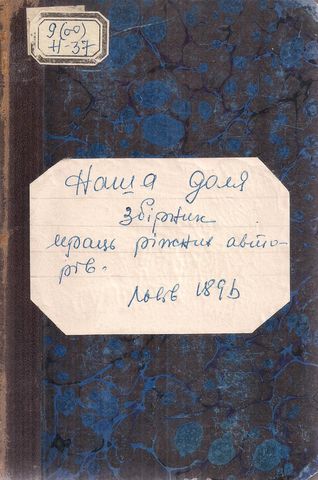 9(00)
Н-37
Наша доля
Збірник
праць ріжних авто-
рів.
Львів 189